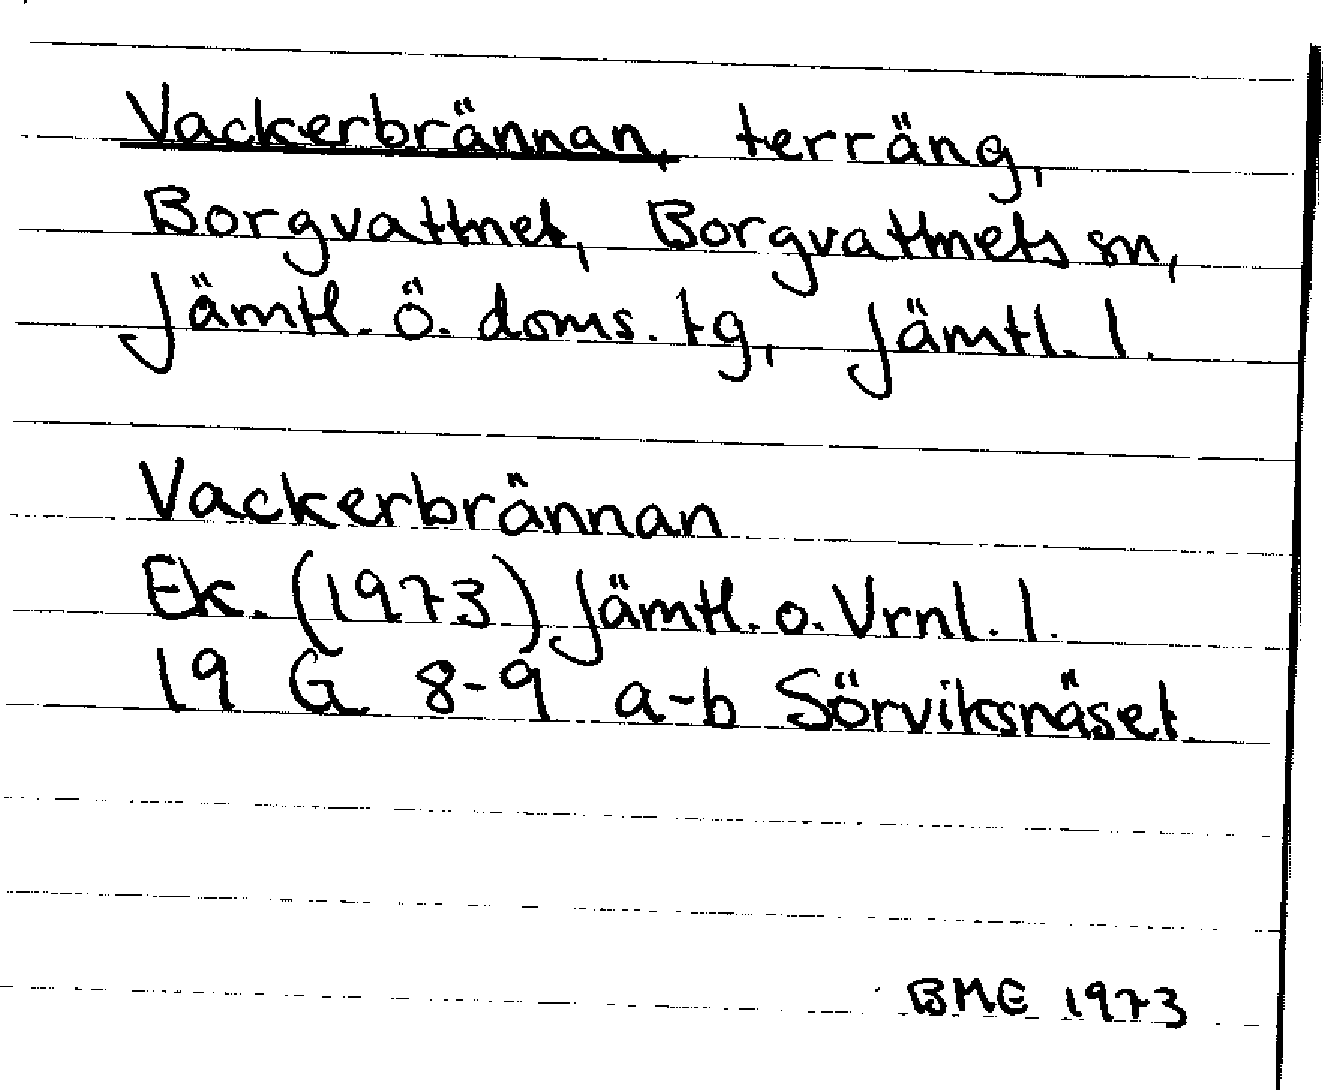 Vackerbrännan, terräng,
Borgvattnet, Borgvattnets sn,
Jämtl. ö. doms. tg, Jämtl. l.
Vackerbrännan
Ek. (1973) Jämtl. o. Vrnl. l.
19 G 8-9 a-b Sörviksnäset.
BME 1973